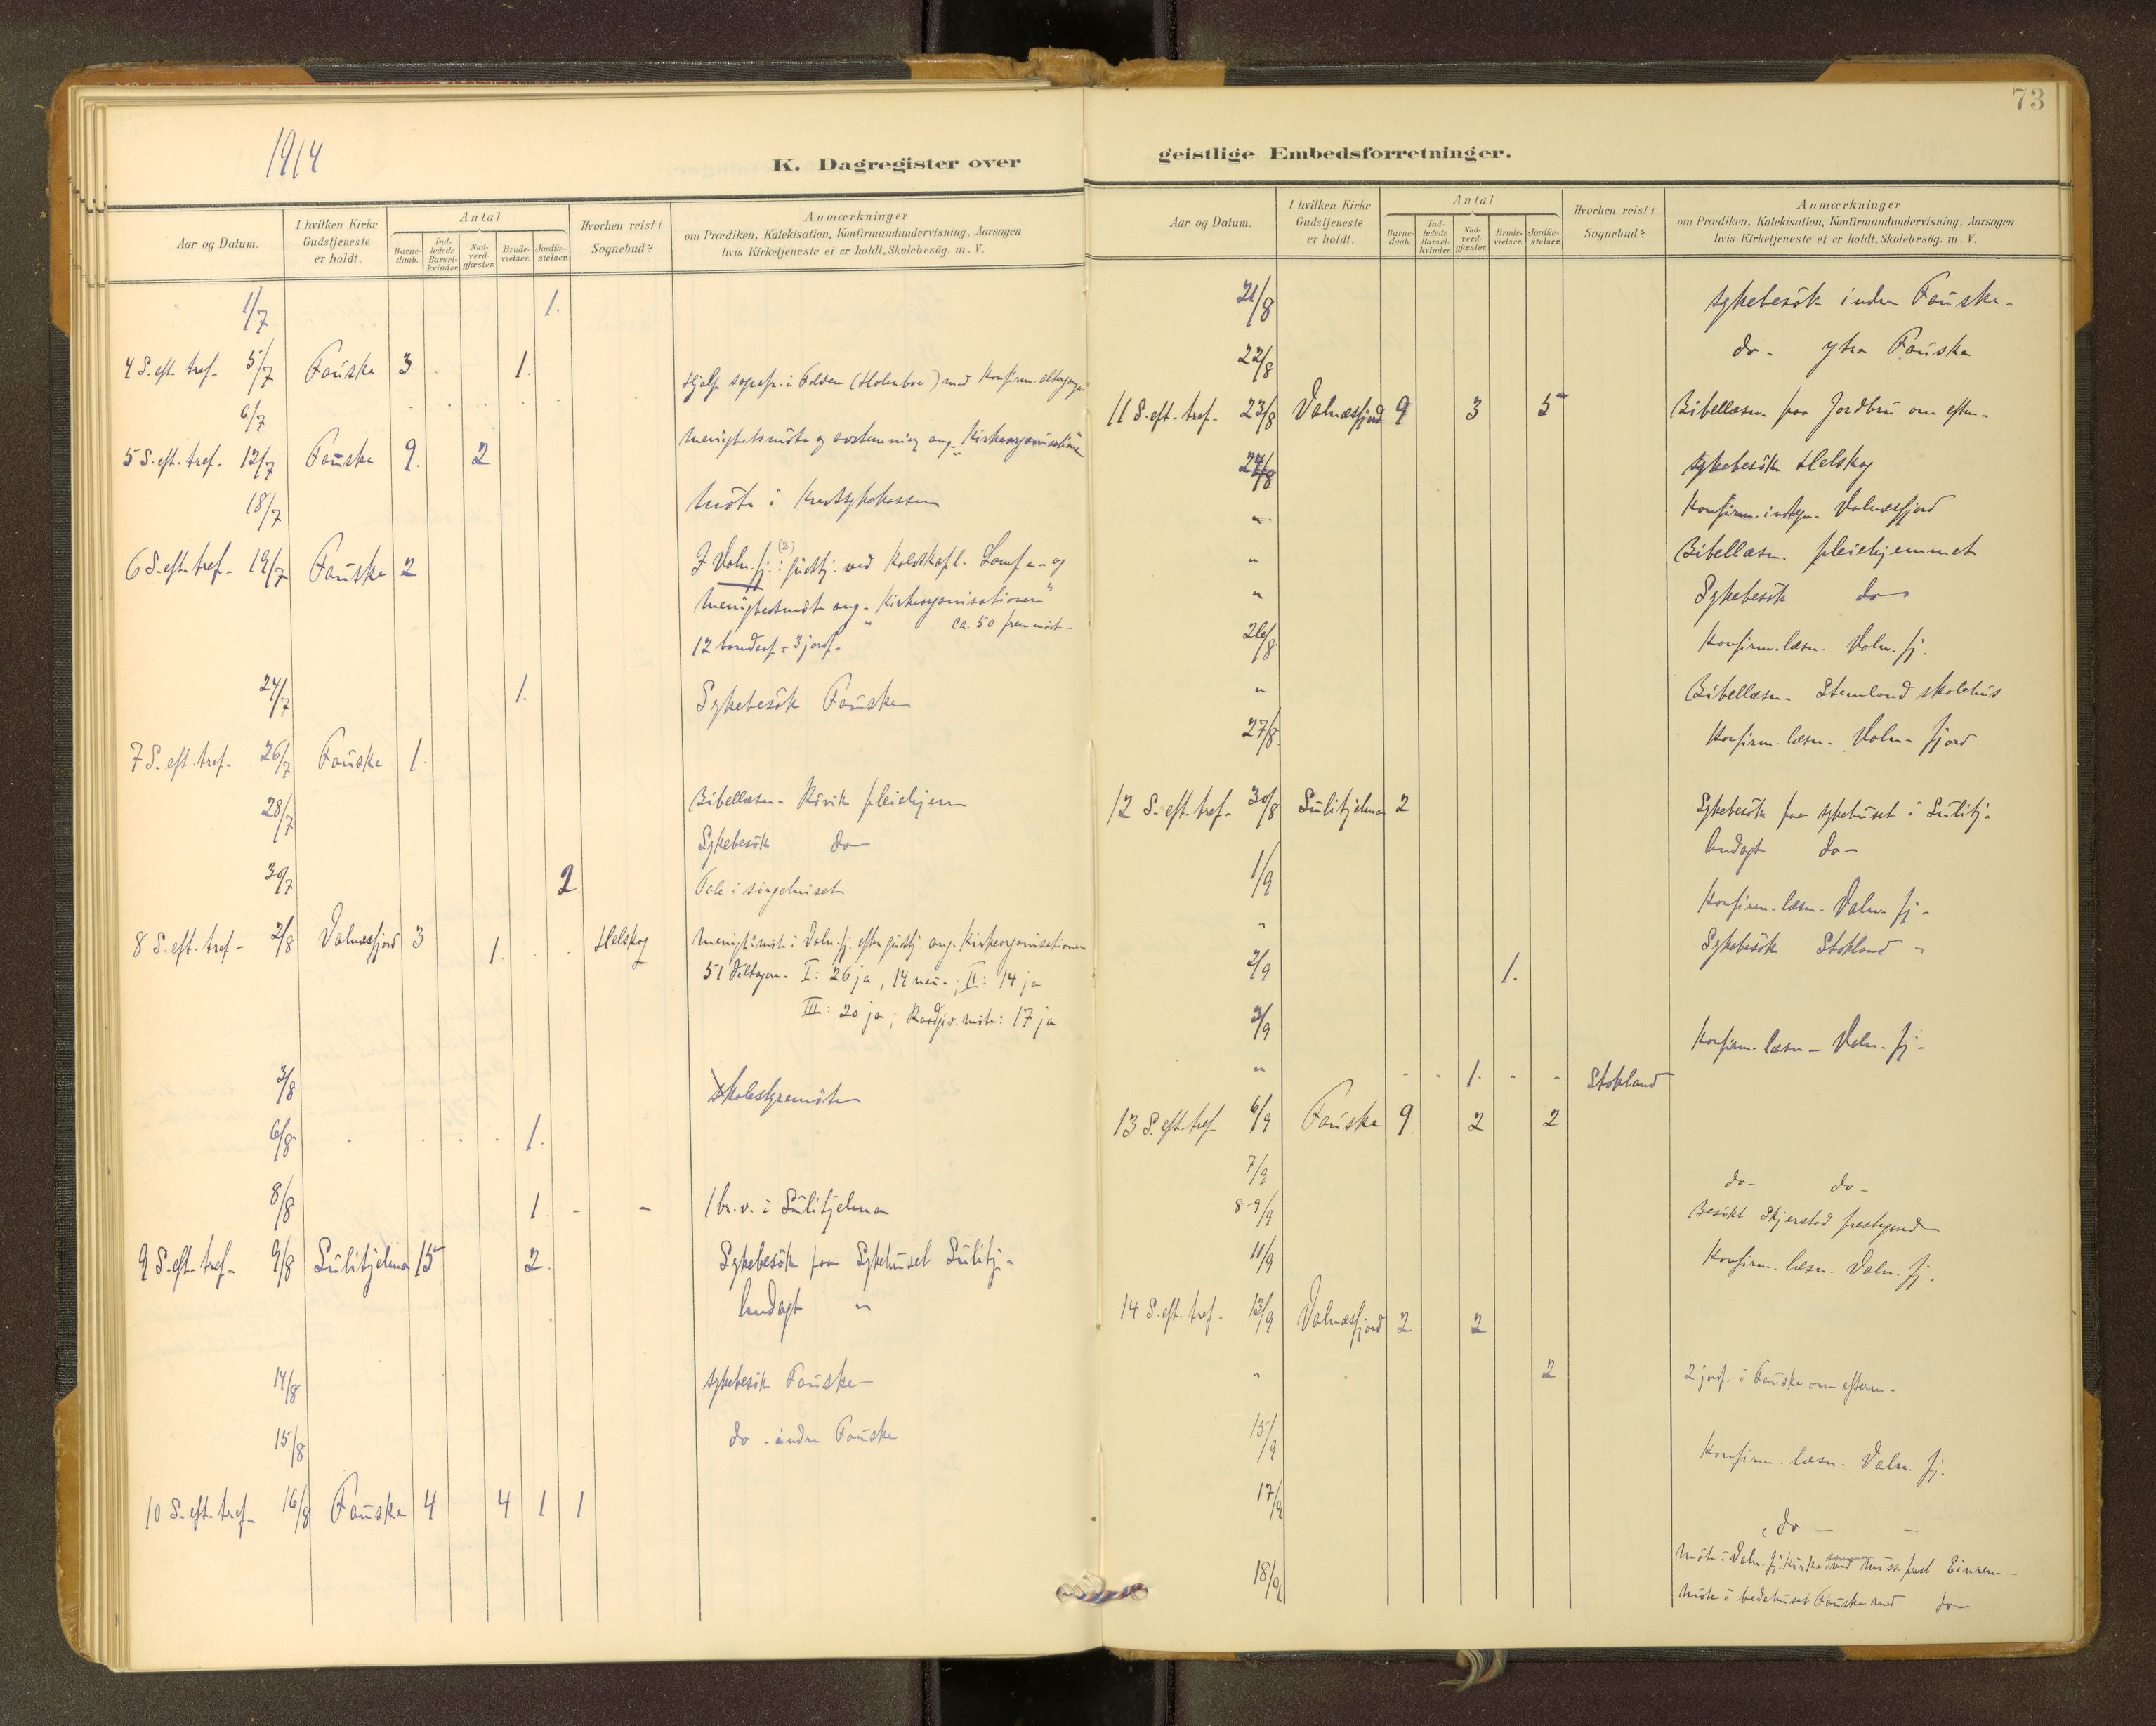 1914
K. Dagregister over
Aar og Datum.
I hvilken Kirke Gudstjeneste er holdt.
Antal
Barne-daab.
Ind-ledede Barsel-kvinder.
Nad-verd-gjæster.
Brude-vielser.
Jordfæ-stelser.
Hvorhen reist i Sognebud?
Anmærkninger
om Prædiken, Katekisation, Konfirmandundervisning, Aarsagen
hvis Kirketjeneste ei er holdt, Skolebesøg. m. V.
1/7 1.
4 S. eft. tref. 5/7 Fauske 3 1.
Hjalp sognepr. i Folden (Holmboe) med konfirm. altergang
6/7
5 S. eft. tref. 12/7 Fauske 9. 2 Menighetsmøte og avstemning ang. "Kirkeorganisationen"
18/7 Møte i Kredssykekassen
6 S. eft. tref. 19/7 Fauske 2 I Valn.fj. (2): gudstj. ved
Menighedsmøte ang. "Kirkeorganisationen"
ca. 50 fremmøt.
12 barnedaap. 3 jordf.
24/7 1. Sykebesøk Fauske
7 S. eft. tref. 26/7 Fauske 1.
28/7 Bibellæsn. Røvik pleiehjem
Sykebesøk do
30/7 2 Tale i sørgehuset
8 S. eft. tref. 2/8 Valnesfjord 3 1 Helskog Menigh.møte i Valn.fj. efter gudstj. ang. Kirkeorganisationen
51 deltagere. I: 26 ja, 14 nei; II: 14 ja
III: 20 ja; Raadgiv. møte: 17 ja
3/8 Skolestyremøte
6/8 1.
8/8 1 - - 1 br.v. i Sulitjelma
9 S. eft. tref. 9/8 Sulitjelma 15 2 Sykebesøk paa Sykehuset Sulitj.
Andagt "
14/8 Sykebesøk Fauske
15/8 do. indre Fauske
10 S. eft. tref. 16/8 Fauske 4 4 1 1
73
geistlige Embedsforretninger.
Aar og Datum.
I hvilken Kirke Gudstjeneste er holdt.
Antal
Barne-daab.
Ind-ledede Barsel-kvinder.
Nad-verd-gjæster.
Brude-vielser.
Jordfæ-stelser.
Hvorhen reist i Sognebud?
Anmærkninger
om Prædiken, Katekisation, Konfirmandundervisning, Aarsagen
hvis Kirketjeneste ei er holdt, Skolebesøg. m. V.
21/8 Sykebesøk indre Fauske
22/8 do. ytre Fauske
11 S. eft. tref. 23/8 Valnæsfjord 9 3 5 Bibellæsn. paa Jordbru om eftm.
24/8 Sykebesøk Helskog
" Konfirm. indskr. Valnæsfjord
" Bibellæsn. pleiehjemmet
" Sykebesøk do
26/8 Konfirm.læsn. Valn.fj.
" Bibellæsn. Stemland skolehus
27/8. Konfirm.læsn. Valn.fjord
12 S. eft. tref. 30/8 Sulitjelma 2 Sykebesøk paa sykehuset i Sulitj.
Andagt do
1/9 Konfirm.læsn. Valn.fj.
" Sykebesøk Stokland
2/9 1.
3/9 Konfirm.læsn. Valn.fj.
" - - 1. - - Stokland
13 S. eft. tref. 6/9 Fauske 9. 2 2
7/9 do do
8-9/9 Besøkt Skjerstad prestegaard
11/9 Konfirm.læsn. Valn.fj.
14 S. eft. tref. 13/9 Valnæsfjord 2 2
" 2 2 jordf. i Fauske om efterm.
15/9 Konfirm.læsn. Valn.fj.
17/9 do
18/9 Møte i Valn.fj. Kirke sammen med miss.prest Einrem
Møte i bedehuset Fauske med do